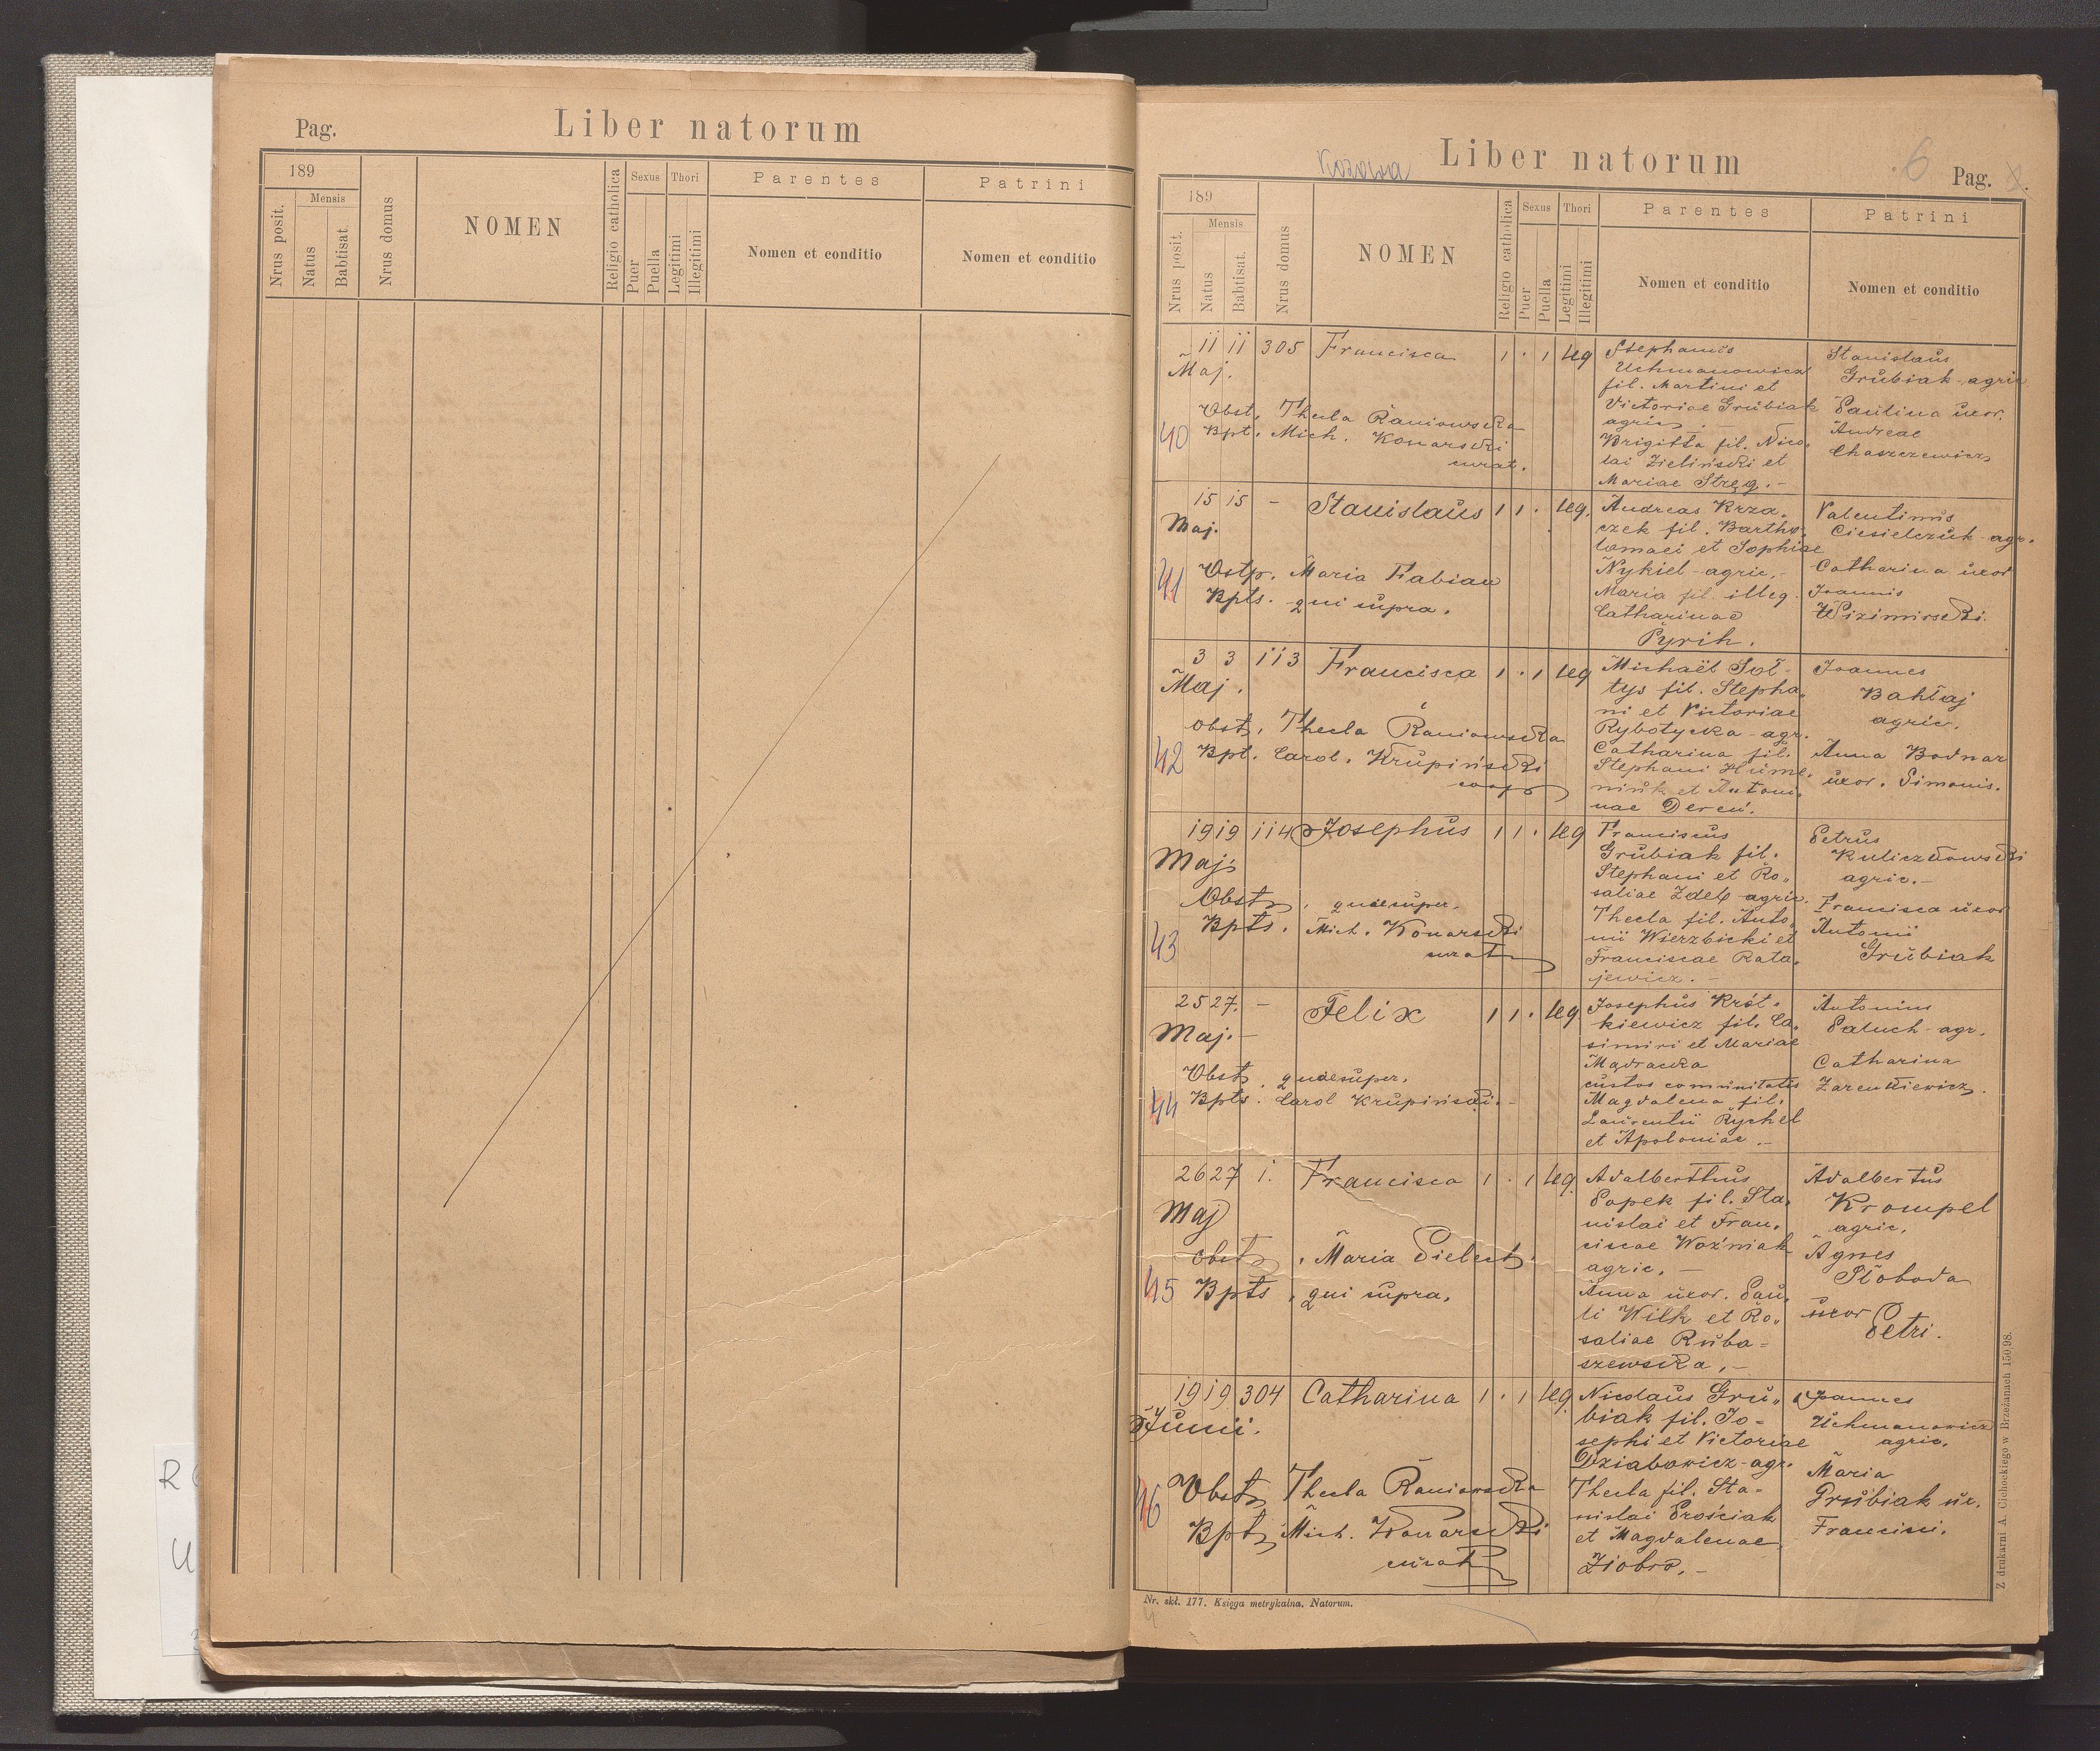 Pag.
Liber natorum
189
Mensis
Nrus posit.
Natus
Babtisat.
Nrus domus
NOMEN
Religio catholica
Sexus
Puer
Puella
Thori
Legitimi
Illegitimi
Parentes
Nomen et conditio
Patrini
Nomen et conditio
Kozowa
Liber natorum
6
Pag.
189
Mensis
Nrus posit.
Natus
Babtisat.
Nrus domus
NOMEN
Religio catholica
Sexus
Puer
Puella
Thori
Legitimi
Illegitimi
Parentes
Nomen et conditio
Patrini
Nomen et conditio
11 11 305 Francisca 1 · 1 leg
Maj.
Obst. Thecla Raniowska
40 Bpt. Mich. Konarski
curat.
Stephanus
Uchmanowicz
fil. Martini et
Victoriae Grubiak
agric.
Brigitta fil. Nico„
lai Zieliński et
Mariae Stręg. –
Stanislaus
Grubiak - agric
Paulina uxor.
Andreae
Chaszczewicz
15 15 – Stanislaus 1 1 · leg.
Maj.
Ostp. Maria Fabian
41 Bpts. qui supra.
Andreas Krza„
czek fil. Bartho„
lomaei et Sophiae
Nykiel - agric. -
Maria fil. illeg.
Catharinae
Pyrih.
Valentinus
Ciesielczuk - agr.
Catharina uxor
Joannis
Wizimirski.
3 3 113 Francisca 1 · 1 leg
Maj.
obst. Thecla Raniowska
42 Bpt. Carol. Krupiński
coop
Michaël Soł-
tys fil. Stepha„
ni et Victoriae
Rybotycka - agr.
Catharina fil.
Stephani Hume„
niuk et Antoni„
nae Dereń.
Joannes
Bahłaj
agric.
Anna Bodnar
uxor. Simonis.
19 19 114 Josephus 1 1 · leg
Maj.
Obst. quae super.
Bpts. Mich. Konarski
43 curat
Franciscus
Grubiak fil.
Stephani et Ro„
saliae Zdeb - agric.
Thecla fil. Anto„
nii Wierzbicki et
Franciscae Rata„
jewicz. –
Petrus
Kuliczkowski
agric. –
Francisca uxor
Antonii
Grubiak
25 27. – Felix 1 1 · leg
Maj. –
Obst. quae super.
44 Bpts. Carol Krupiński. –
Josephus Krót„
kiewicz fil. Ca„
simiri et Mariae
Mądracka
custos communitatis
Magdalena fil.
Laurentii Rychel
et Apoloniae. –
Antonius
Paluch - agr.
Catharina
Zarenkiewicz
26 27 1. Francisca 1 · 1 leg.
Maj
obst. Maria Pielech.
45 Bpts. qui supra.
Adalberthus
Popek fil. Sta„
nislai et Fran„
ciscae Woźniak
agric. –
Anna uxor. Pau„
li Wilk et Ro„
saliae Ruba=
szewska. –
Adalbertus
Krompel
agric.
Agnes
Słoboda
uxor Petri.
19 19 304 Catharina 1 · 1 leg.
Junii.
Obst. Thecla Raniowska
46 Bpt. Mich. Konarski
curat
Nicolaus Gru„
biak fil. Jo=
sephi et Victoriae
Dziabowicz - agr.
Thecla fil. Sta=
nislai Prościak
et Magdalenae
Ziobro. –
Joannes
Uchmanowicz
agric.
Maria
Grubiak ux.
Francisci.
Nr. skł. 177. Księga metrykalna. Natorum.
Z drukarni A. Cichockiego w Brzeżanach 150/98.